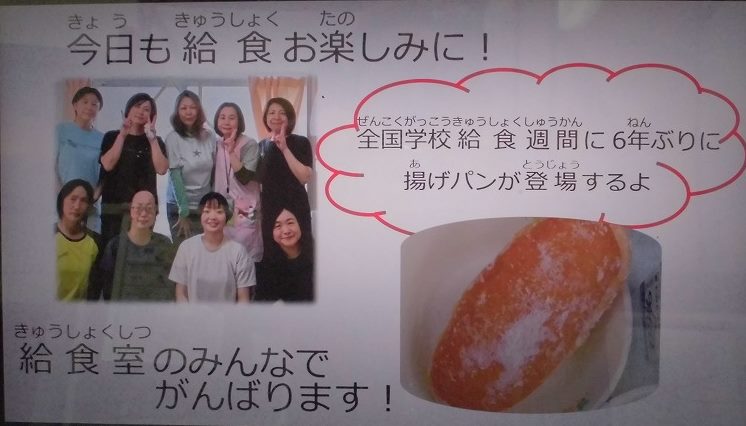 きょう きゅうしょく たの
今日も給食お楽しみに！
ぜんこくがっこうきゅうしょくしゅうかん ねん
全国学校給食週間に6年ぶりに
あ とうじょう
揚げパンが登場するよ
きゅうしょくしつ
給食室のみんなで
がんばります！